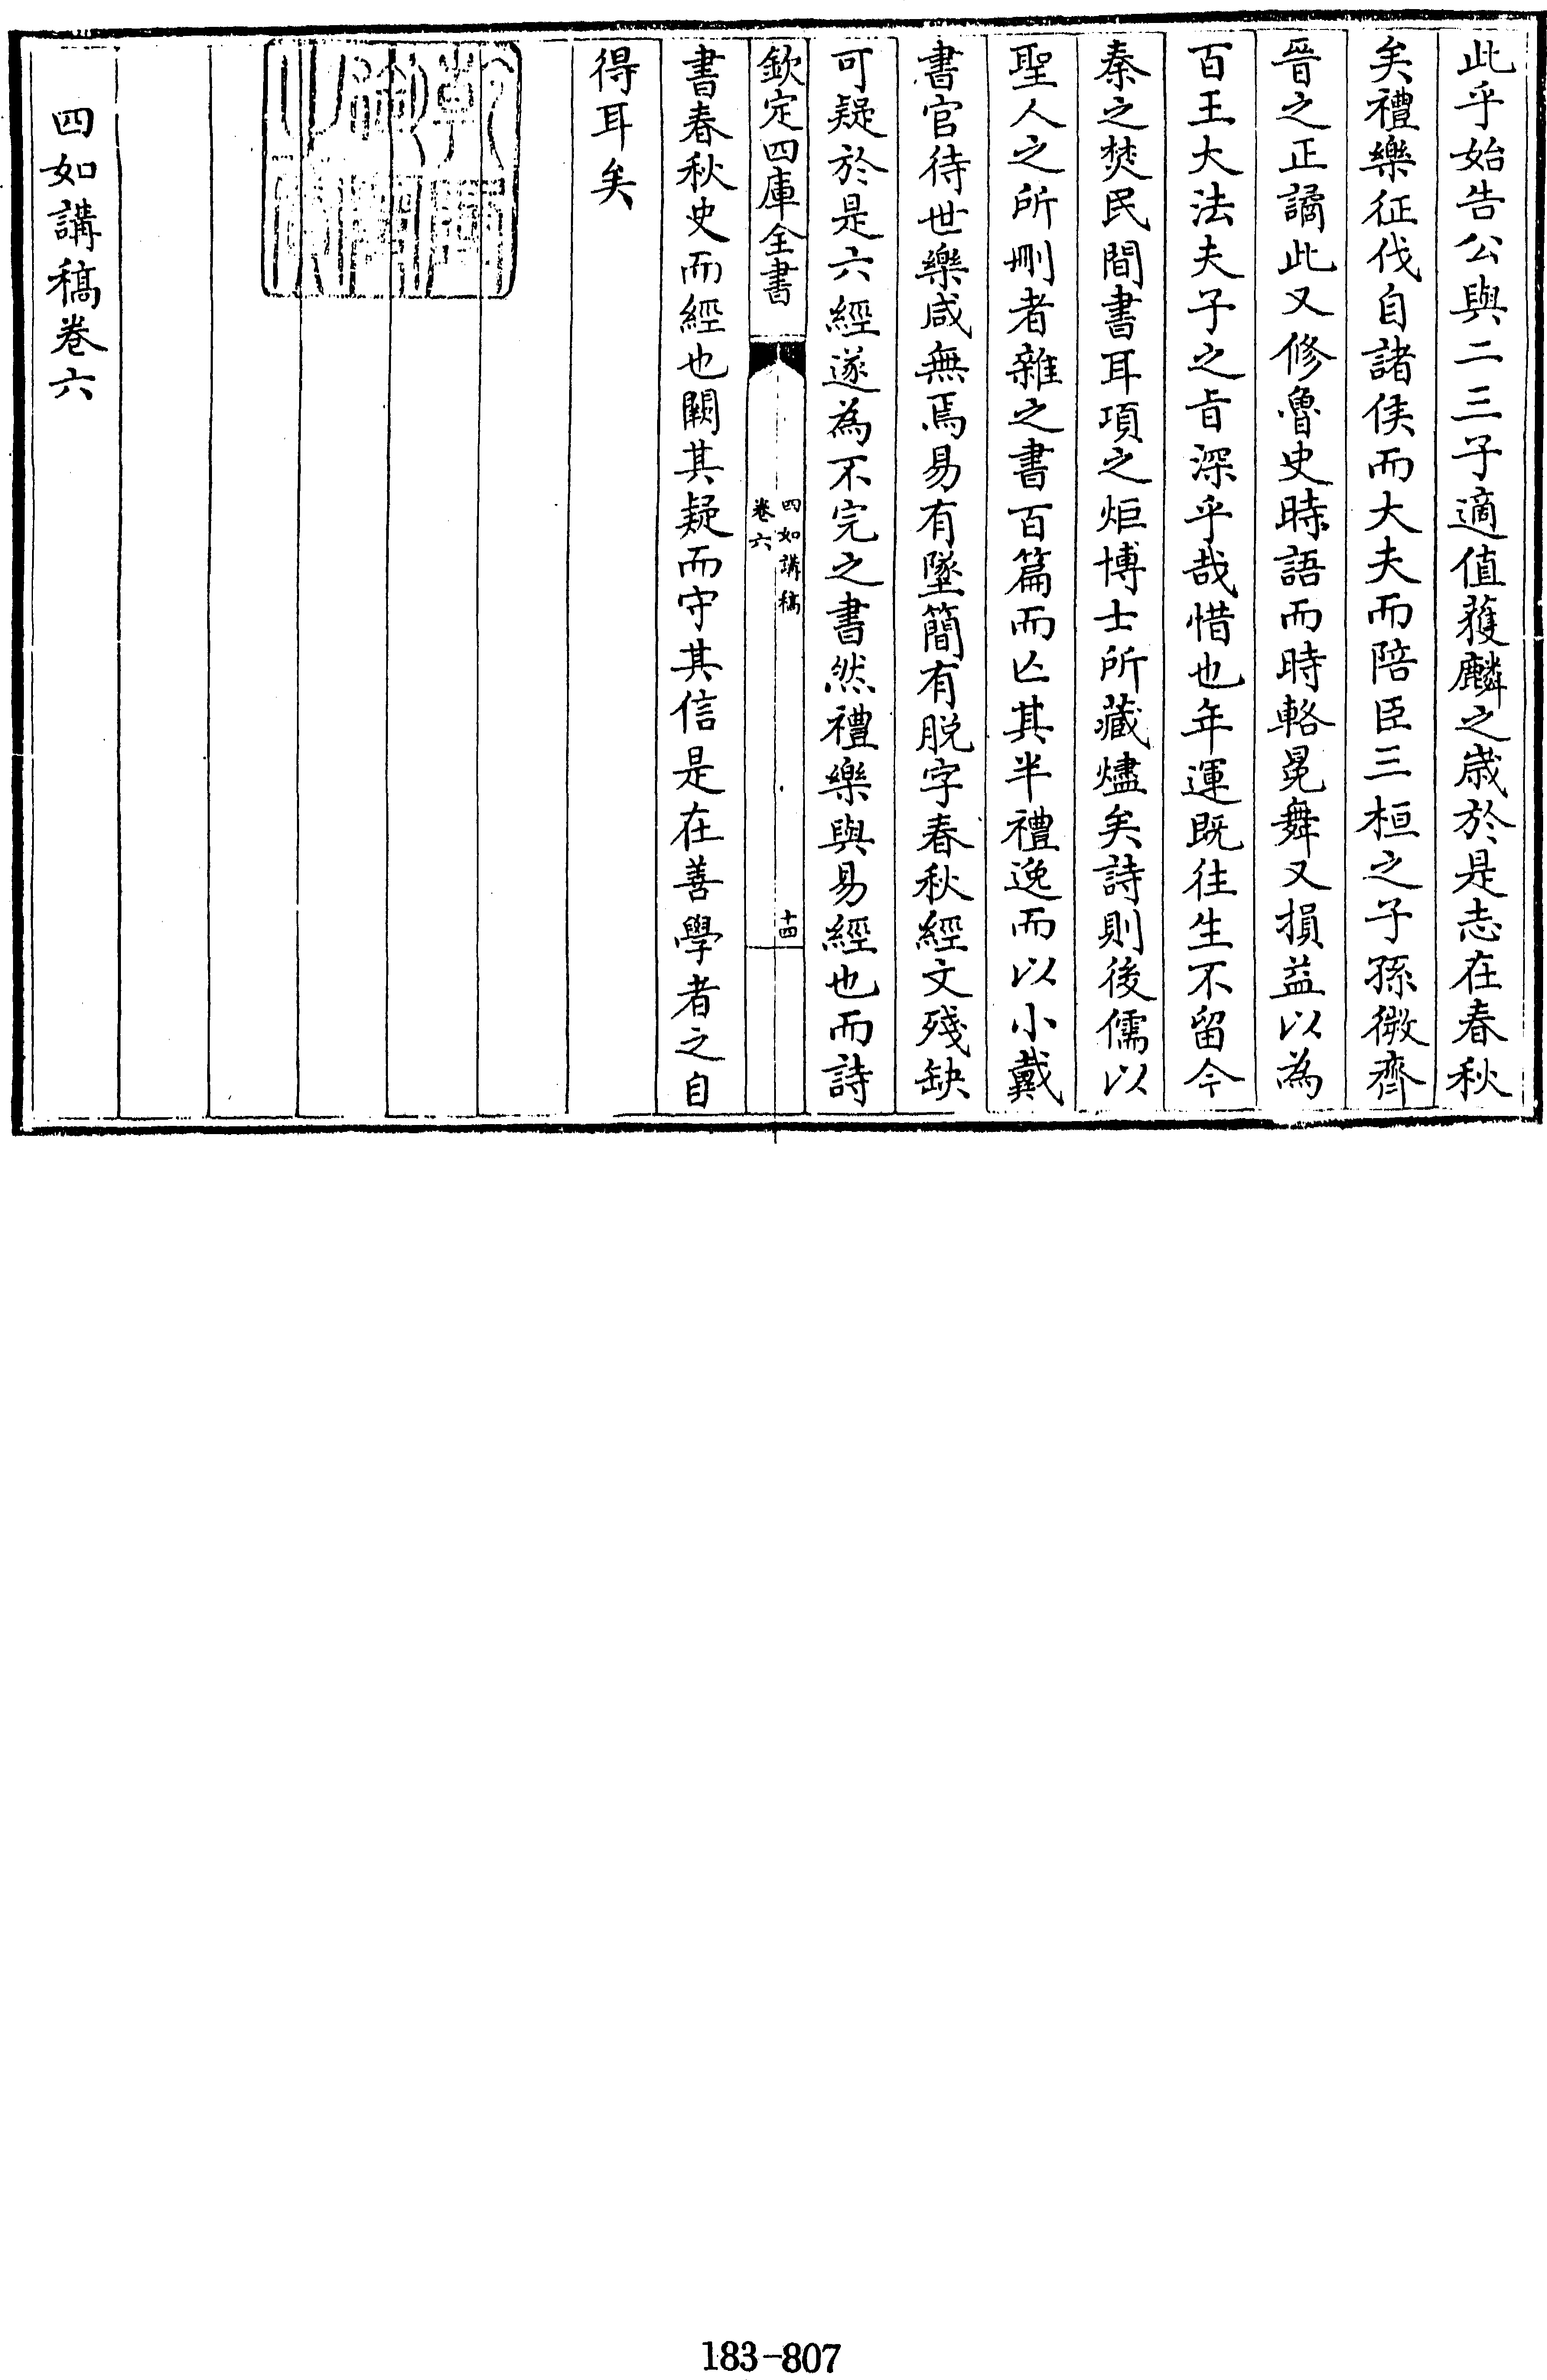 此乎始告公與二三子適值獲麟之歲於是志在春秋
矣禮樂征伐自諸侯而大夫而陪臣三桓之子孫微齊
晉之正譎此又修魯史時語而時輅冕舞又損益以為
百王大法夫子之旨深乎哉惜也年運既往生不留今
秦之焚民間書耳項之炬博士所藏燼矣詩則後儒以
聖人之所刪者雜之書百篇而亾其半禮逸而以小戴
書官待世樂咸無焉易有墜簡有脱字春秋經文殘缺
可疑於是六經遂為不完之書然禮樂與易經也而詩
欽定四庫全書
四如講稿
卷六
十四
書春秋史而經也闕其疑而守其信是在善學者之自
得耳矣
四如講稿卷六
183-807